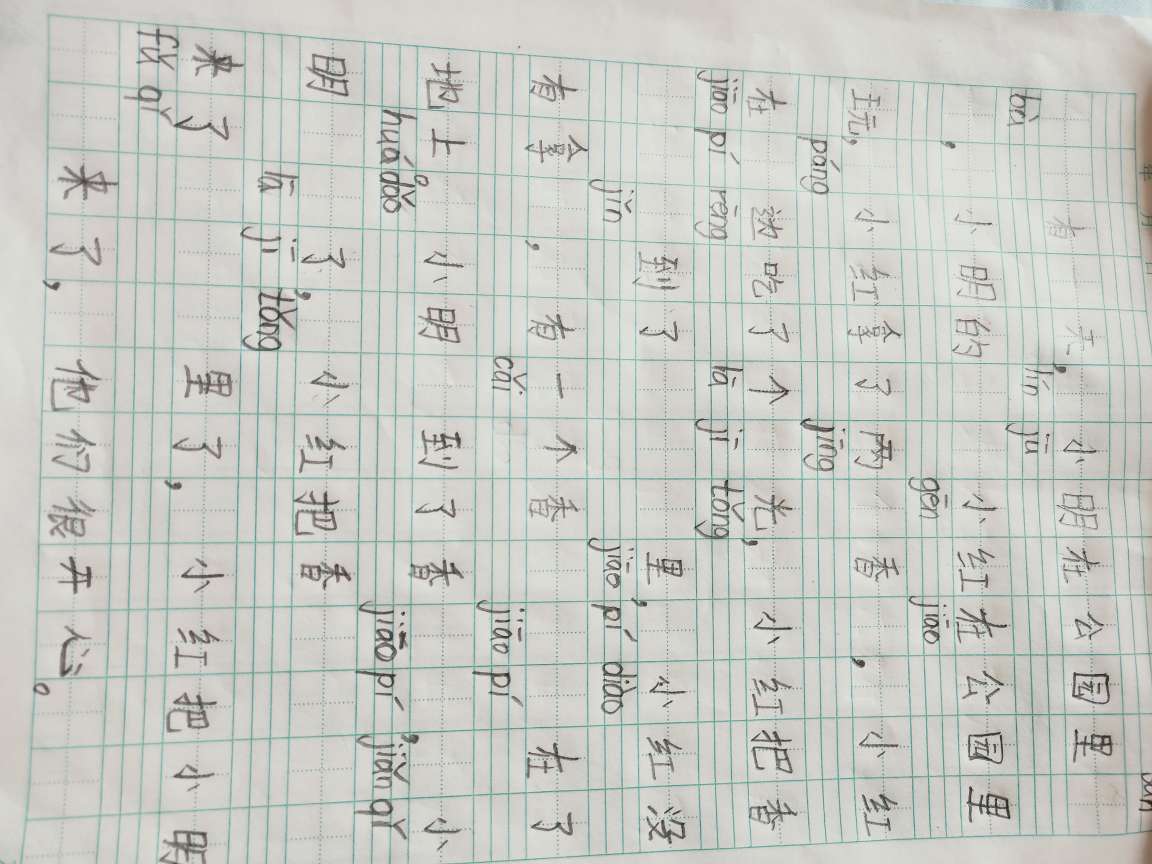 有一天,小明在公园里
,小明的 lín jū 小红在公园里
玩,小红拿了两 gēn 香 jiāo ,小红
在 páng 边吃了个 jīng 光,小红把香
jiāo pí rēng 到了 lā jī tǒng 里,小红没
有拿 jǐn ,有一个香 jiāo pí diào 在了
地上。小明 cǎi 到了香 jiāo pí ,小
明 huá dǎo 了,小红把香 jiāo pí jiǎn qǐ
来了 lā jī tǒng 里了,小红把小明
fú qǐ 来了,他们很开心。